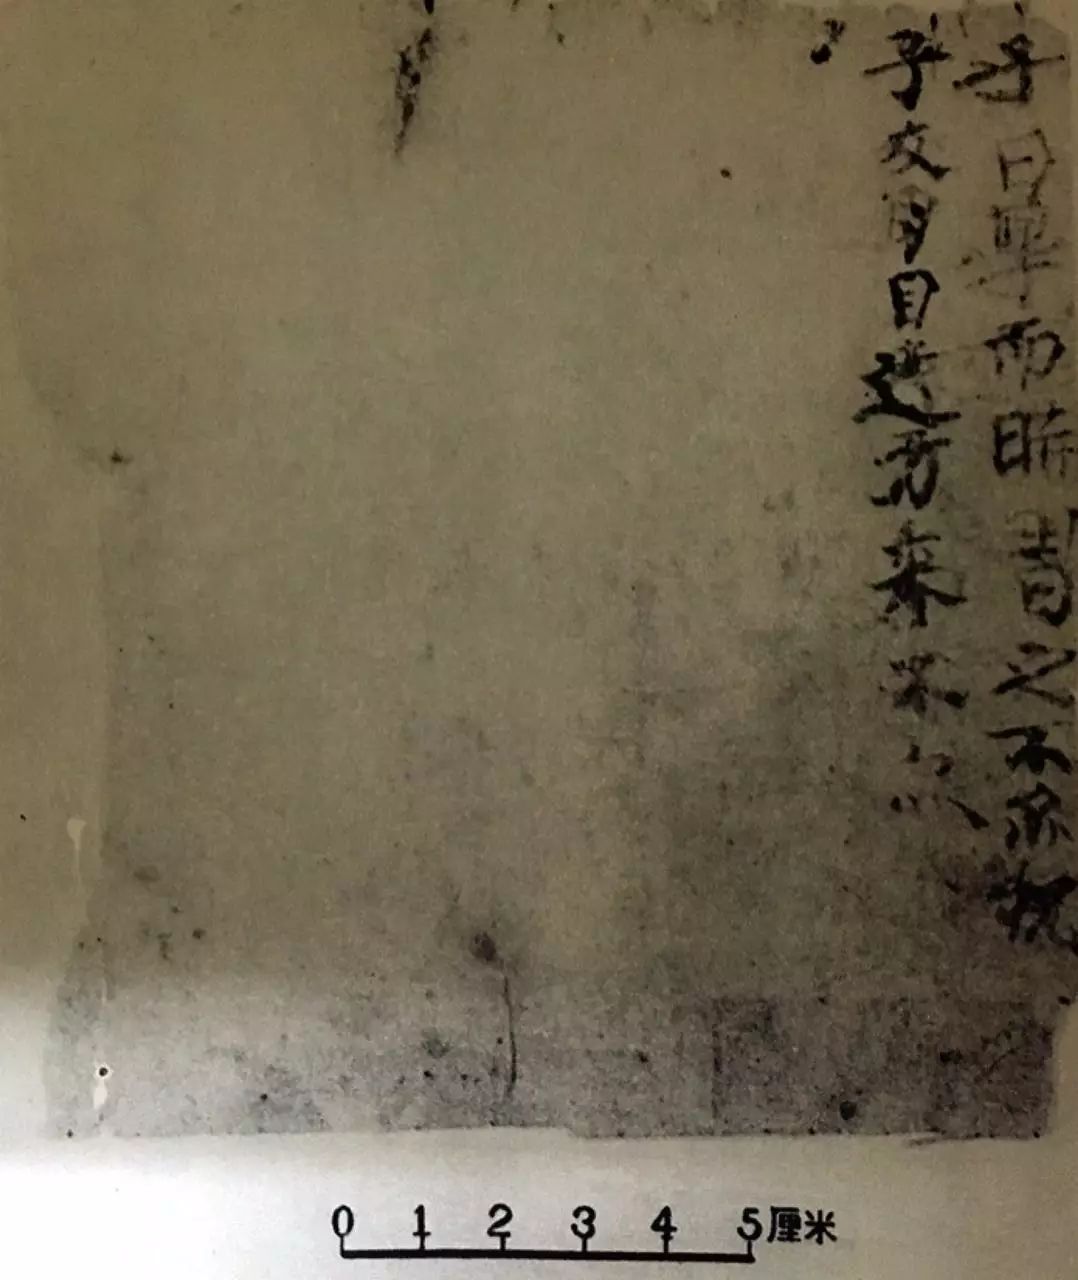 子曰學而時習之不亦悦
乎友朋自遠方來不亦
0 1 2 3 4 5厘米